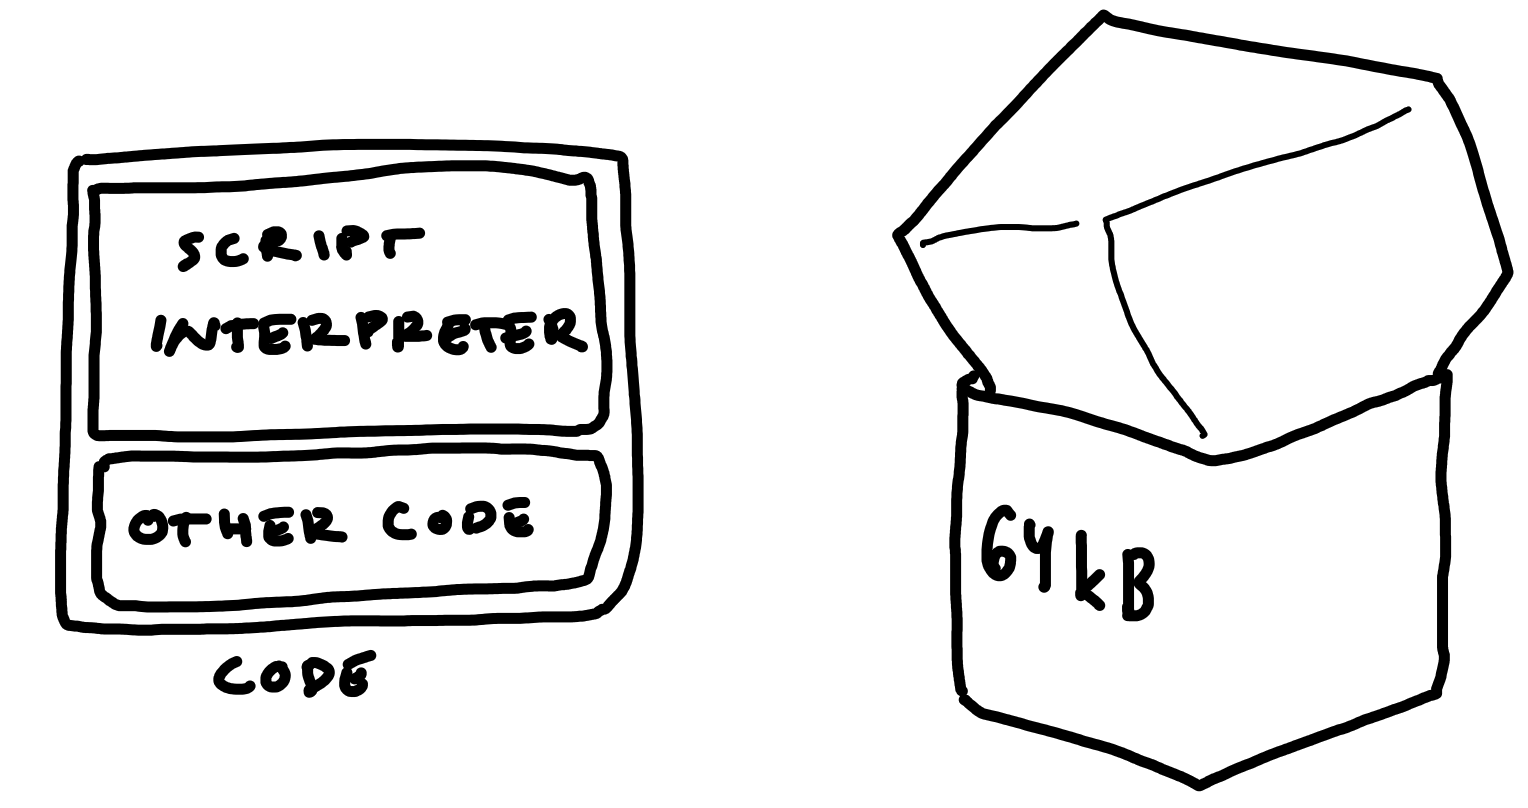 SCRIPT
INTERPRETER
OTHER CODE
CODE
64 kB